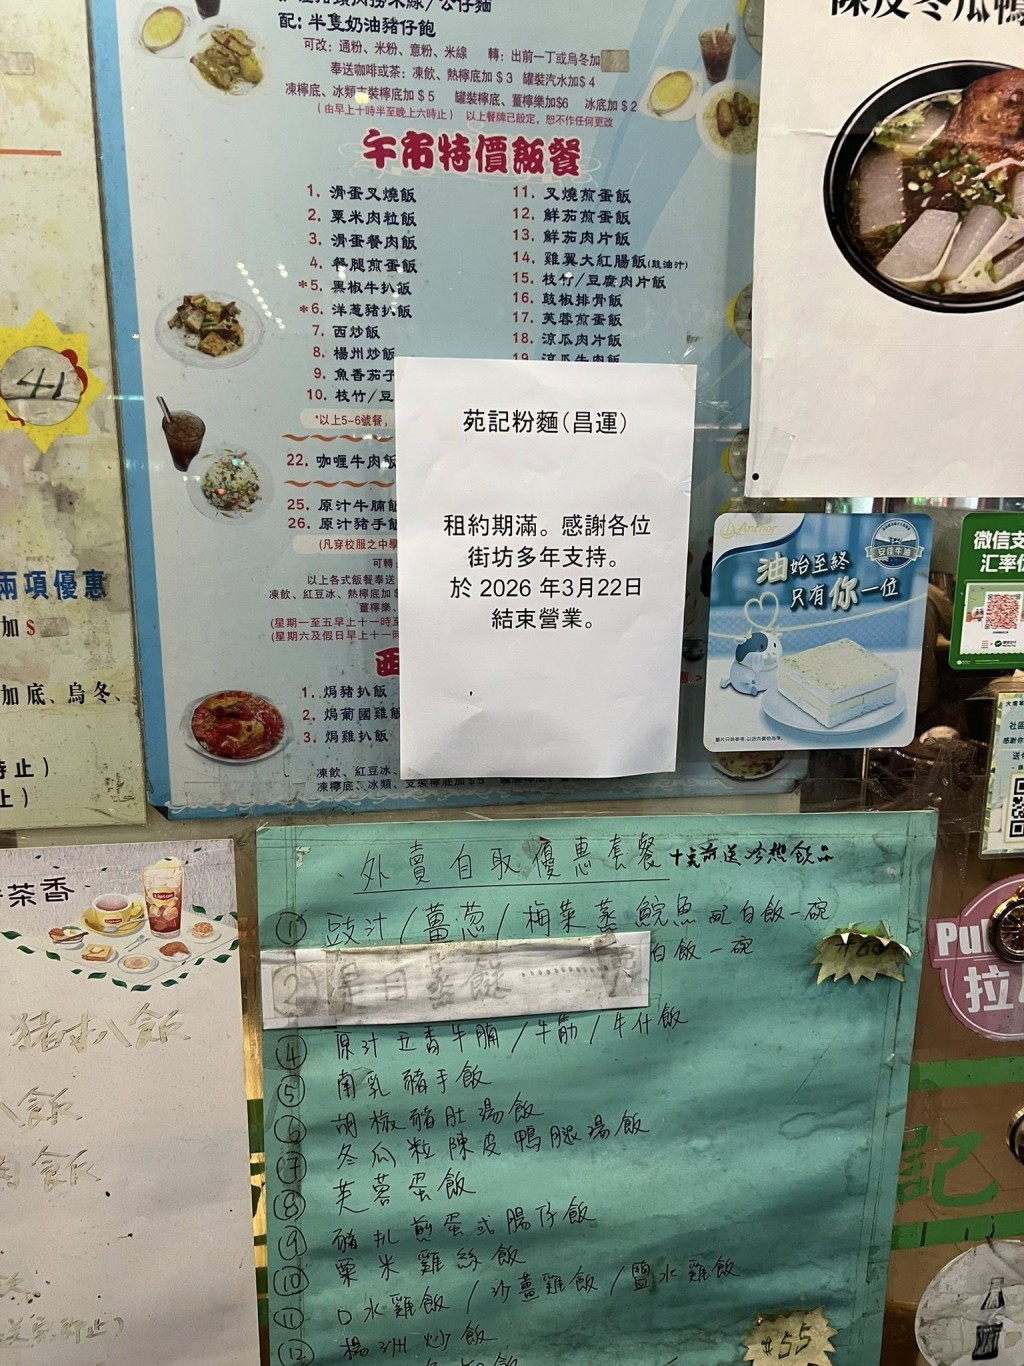 配: 半隻奶油豬仔飽
可改: 通粉、米粉、意粉、米線 轉: 出前一丁或烏冬加
奉送咖啡或茶: 凍飲、熱檸底加 $3 罐裝汽水加 $4
罐裝檸底、薑檸樂加$6 冰底加 $2
(由早上十時半至晚上六時止) 以上餐牌已設定，恕不作任何更改
午市特價飯餐
1. 滑蛋叉燒飯
2. 粟米肉粒飯
3. 滑蛋餐肉飯
4. 餐腿煎蛋飯
*5. 黑椒牛扒飯
*6. 洋葱豬扒飯
7. 西炒飯
8. 楊州炒飯
9. 魚香茄子
10. 枝竹/豆
11. 叉燒煎蛋飯
12. 鮮茄煎蛋飯
13. 鮮茄肉片飯
14. 雞翼大紅腸飯(豉油汁)
15. 枝竹/豆腐肉片飯
16. 豉椒排骨飯
17. 芙蓉煎蛋飯
18. 涼瓜肉片飯
19. 涼瓜牛肉飯
*以上5-6號餐,
22. 咖喱牛肉飯
25. 原汁牛腩飯
26. 原汁豬手飯
(凡穿校服之中學
可轉:
以上各式飯餐奉送
凍飲、紅豆冰、熱檸底加 $
薑檸樂、
(星期一至五早上十一時至
(星期六及假日早上十一時
1. 焗豬扒飯
2. 焗葡國雞飯
3. 焗雞扒飯
凍飲、紅豆冰、
苑記粉麵(昌運)
租約期滿。感謝各位
街坊多年支持。
於 2026 年3月22日
結束營業。
41
兩項優惠
加 $
加底、烏冬、
時止)
止)
Anchor
安佳牛油
油始至終
只有你一位
微信支
汇率优
茶香
Lipton
豬扒飯
飯
外賣自取優惠套餐
① 豉汁/薑葱/梅菜蒸鯇魚配白飯一碗
白飯一碗
④ 原汁五香牛腩/牛筋/牛什飯
⑤ 南乳豬手飯
⑥ 胡椒豬肚湯飯
⑦ 冬瓜粒陳皮鴨腿湯飯
⑧ 芙蓉蛋飯
⑨ 豬扒煎蛋或腸仔飯
⑩ 粟米雞絲飯
⑪ 口水雞飯/沙薑雞飯/鹽水雞飯
⑫ 楊洲炒飯
$55
Pu
拉
記